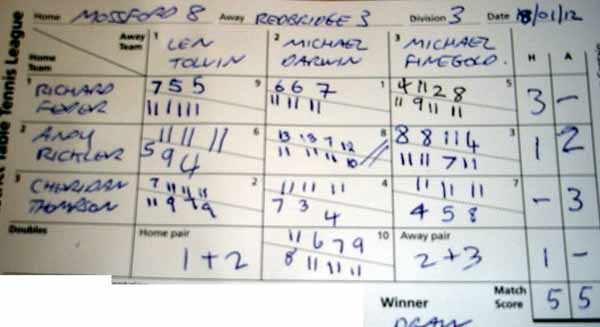 Home MOSSFORD 8 Away REDBRIDGE 3 Division 3 Date 18/01/12
Table Tennis League
Away Team
Home Team
1 LEN TOLVIN
2 MICHAEL DARWIN
3 MICHAEL FINEGOLD.
H A
1 RICHARD FEDER
7 5 5 9
11 11 11
6 6 7 1
11 11 11
4 11 2 8 5
11 9 11 11
3 -
2 ANDY RICKLER
11 11 11 6
5 9 4
13 13 7 12 8
11 11 11 10
8 8 11 4 3
11 11 7 11
1 2
3 CHERIDAN THOMPSON
7 11 11 11 2
11 9 7 9
11 11 11 4
7 3 4
11 11 11 7
4 5 8
- 3
Doubles
Home pair
1 + 2
11 6 7 9 10
8 11 11 11
Away pair
2 + 3
1 -
Winner
DRAW
Match Score 5 5